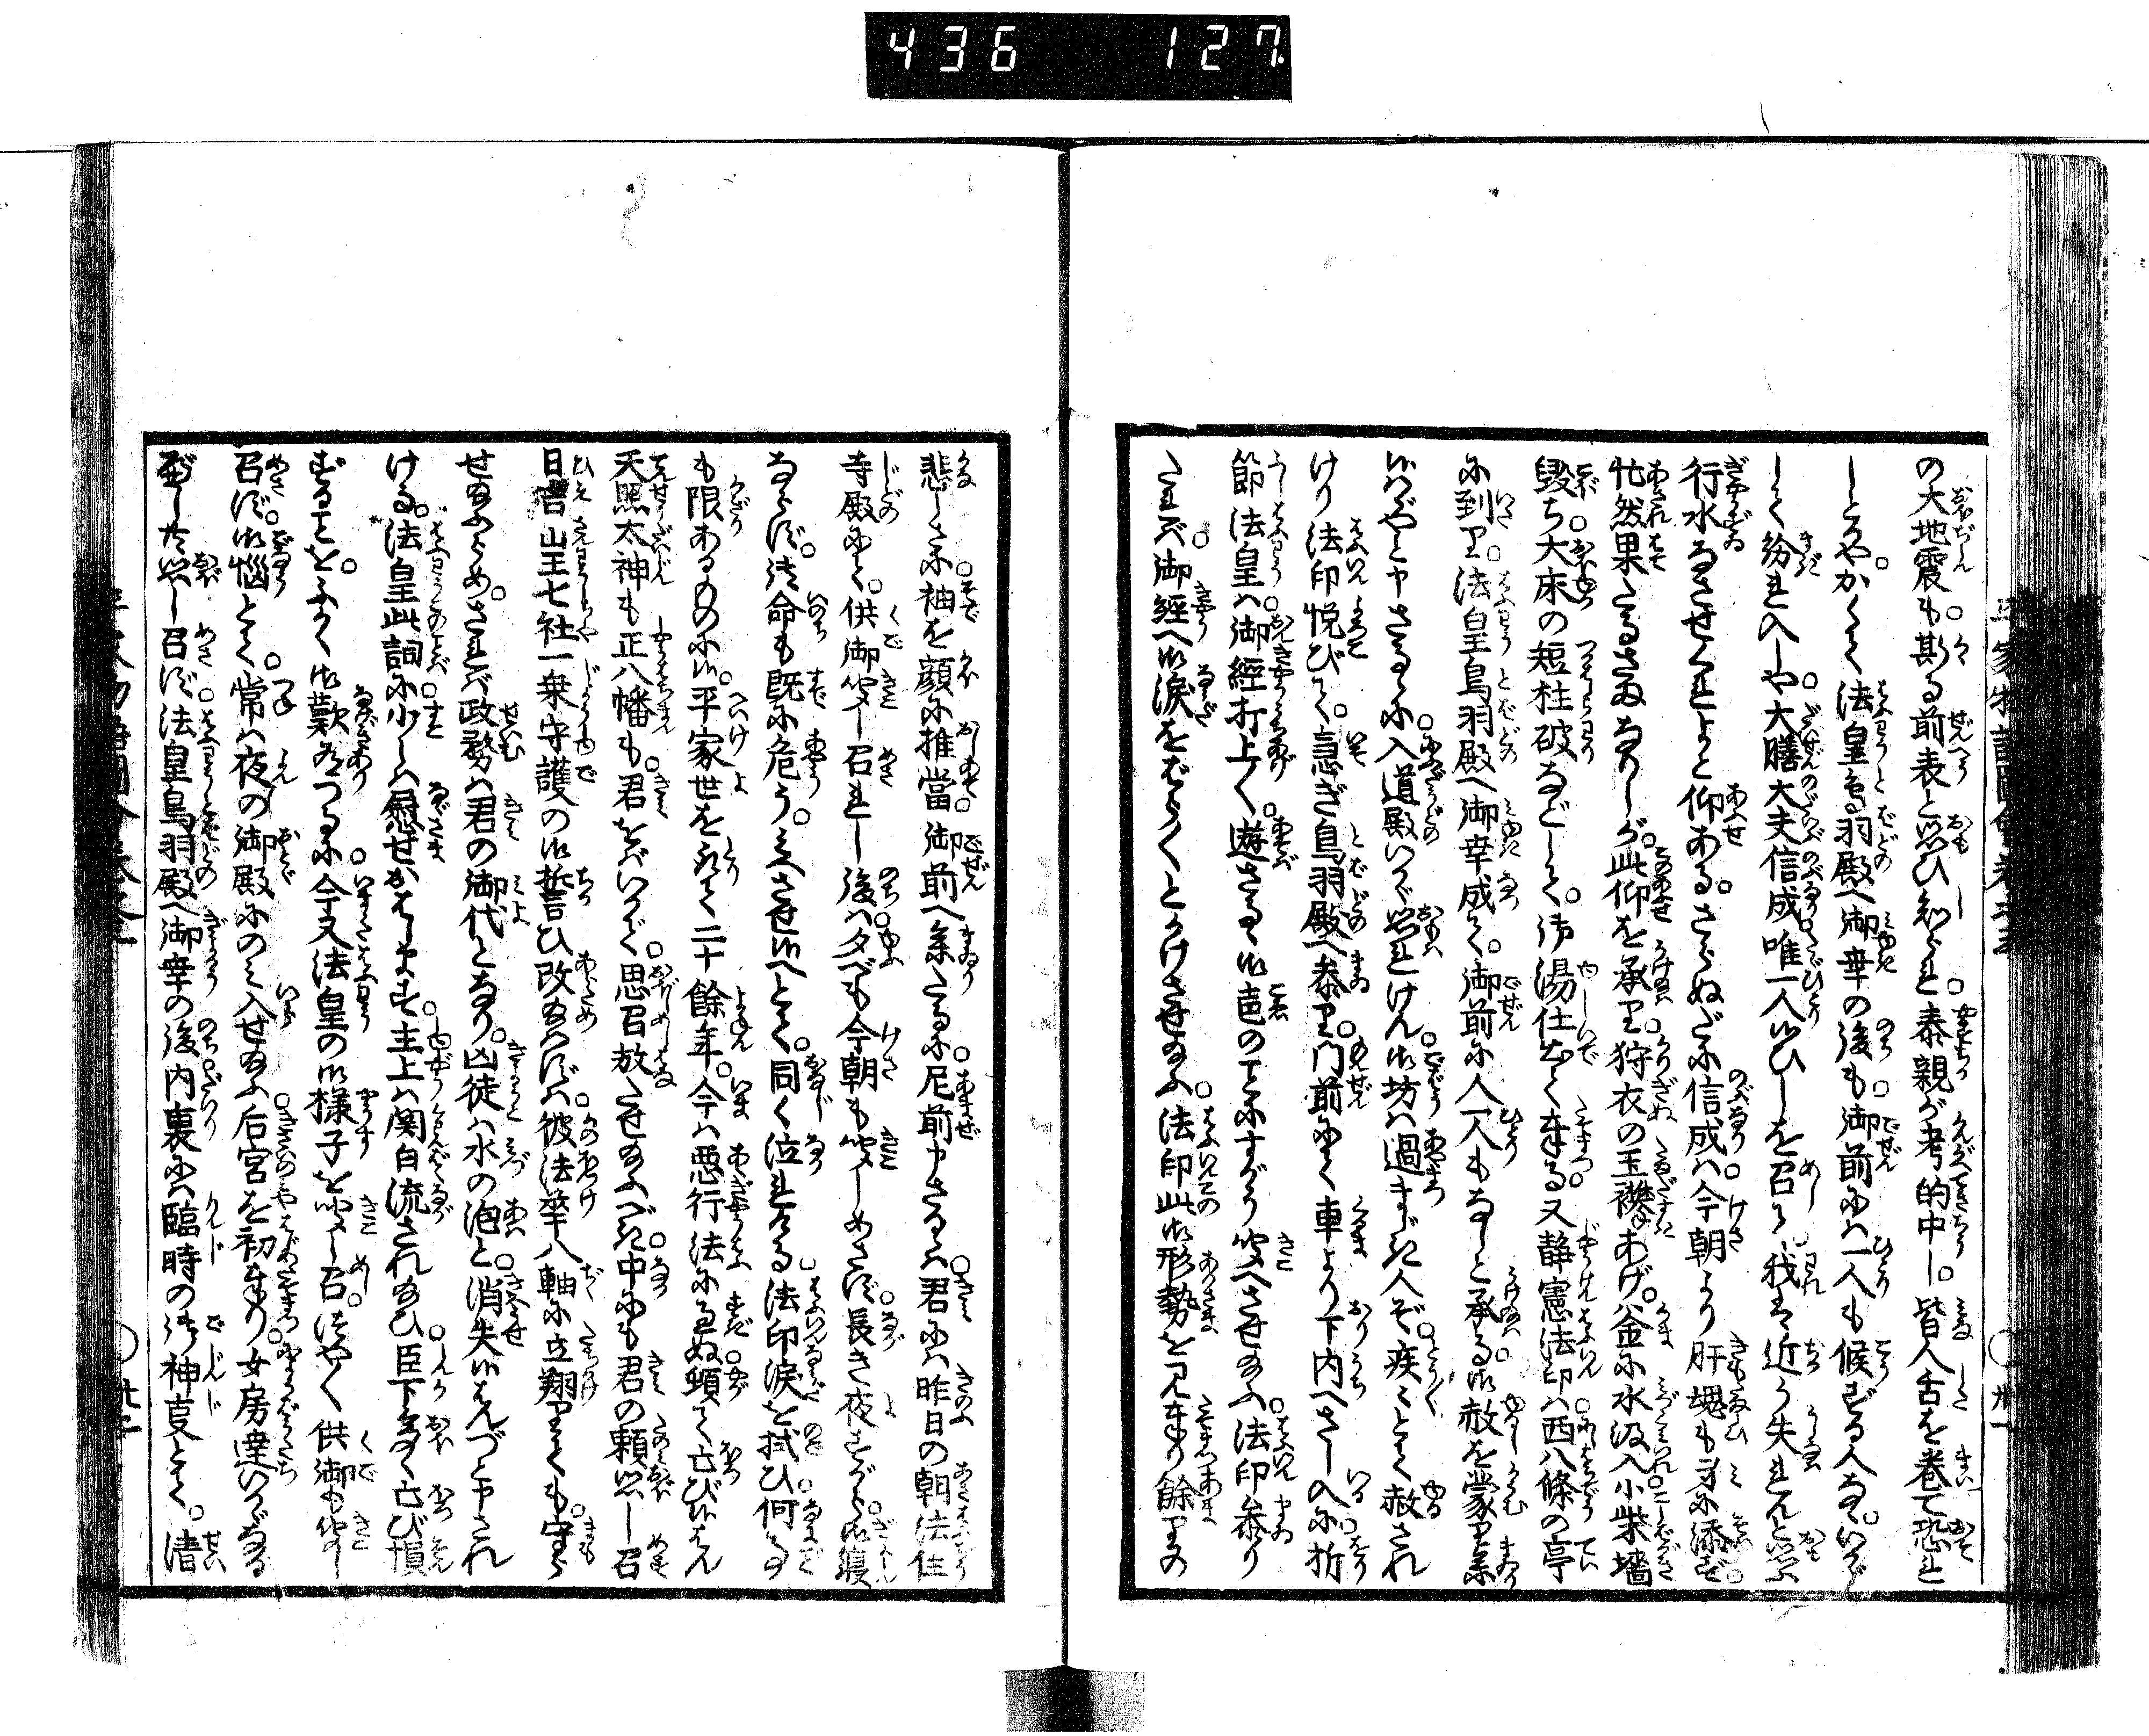 436 127.
の大地震も。斯る前表と思ひ知られ。泰親が考的中し。皆人舌を巻て恐れ
しとかや。かくて法皇鳥羽殿へ御幸の後も。御前には一人も候ずる人なく。いかゞ
して紛れ入しや大膳大夫信成唯一人候ひしを召て。我は近う失れんと思ふ
行水なさせくれよと仰ある。さらぬだに信成は今朝より肝魂も身に添ず。
忙然果たるさまなりしが。此仰を承り狩衣の玉襷あげ。釜に水汲入小柴墻
毀ち大床の短柱破などして。御湯仕出て奉る。又静憲法印は西八條の亭
に到り。法皇鳥羽殿へ御幸成て。御前に人一人もなしと承る。御赦を蒙り参
候はゞやと申さるゝに。入道殿いかゞ思れけん。御坊は過まじき人ぞ。疾々とて赦され
けり法印悦びて。急ぎ鳥羽殿へ参り。門前にて車より下内へさし入に折
節法皇は。御經打上々遊さるゝ御声のことにすごう聞へさせ給ふ。法印参り
たれば。御經へ御涙をはら〳〵とかけさせ給ふ。法印此御形勢を見奉り餘りの
悲しさに。袖を顔に推當。御前へ参たるに。尼前申さるゝは。君には昨日の朝法住
寺殿にて。供御聞し召れし後は。夕べも今朝も聞しめさず。長き夜すがら。御寝
ならず。御命も既に危う。みへさせ候へとて。同く泣れける。法印涙を拭ひ何事
も限あるものに候。平家世をとりて二十餘年。今は悪行法に過ぬ頓て亡び候はん
天照太神も正八幡も。君をばいかで。思召放たせ給ふべき。中にも君の頼思し召
日吉山王七社一乗守護の御誓ひ改給はずば。彼法華八軸に立翔りても。守ら
せ給ふらめ。されば政務は君の御代となり。凶徒は水の泡と。消失候はんづと申され
ける。法皇此詞に少しは慰せおはします。主上は関白流され給ひ。臣下多く亡び損
ずることを。ふかく御歎ありつるに。今又法皇の御様子を聞し召。はやく供御も聞し
召ず。御悩とて。常は夜の御殿にのみ入せ給ふ。后宮を初奉り。女房達いかゞなる
べしとも思し召ず。法皇鳥羽殿へ御幸の後。内裏には臨時の御神事とて。清